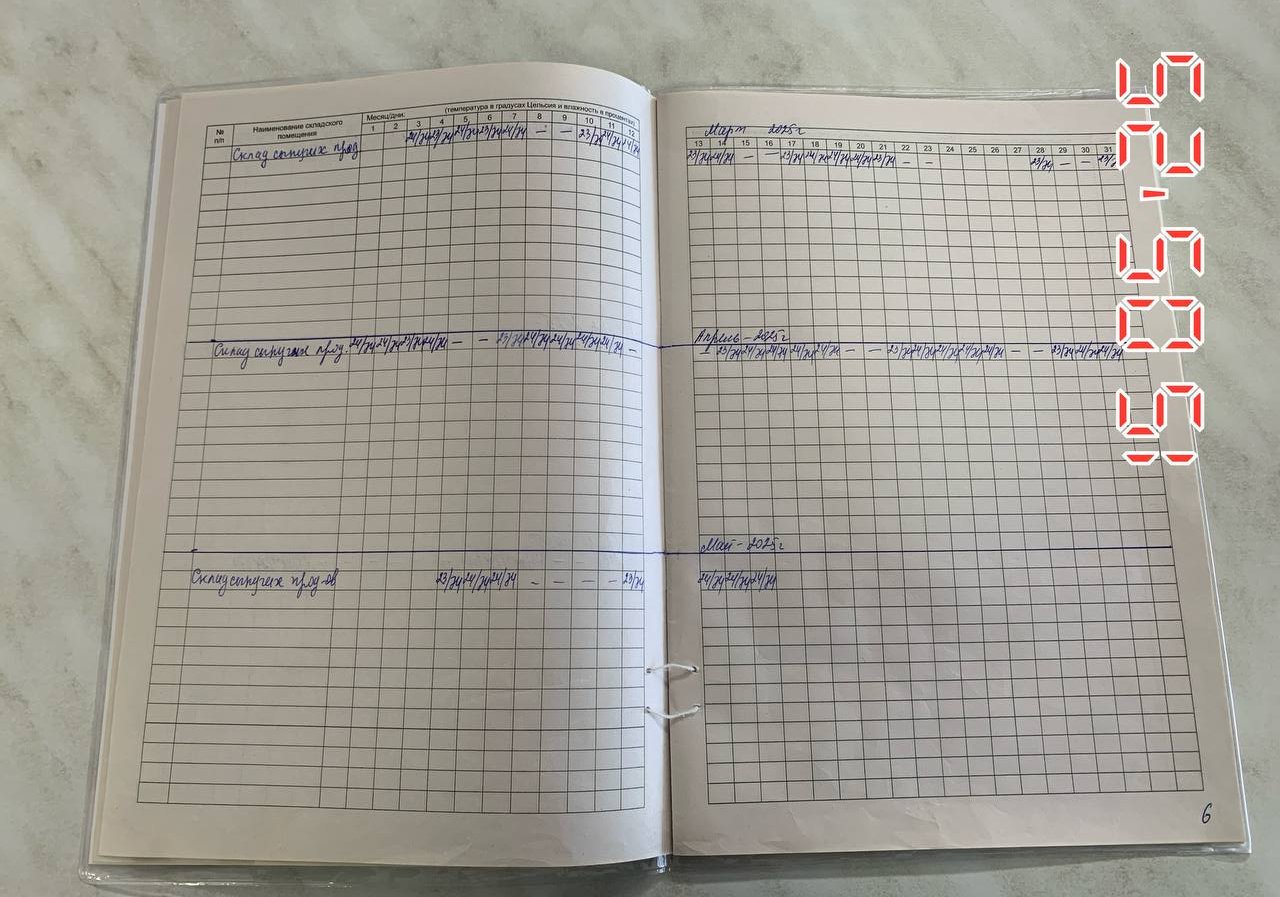 (температура в градусах Цельсия и влажность в процентах)
№ п/п
Наименование складского помещения
Месяц/дни:
1 2 3 4 5 6 7 8 9 10 11 12
Склад сыпучих прод 24/74 23/74 24/74 23/74 24/74 - - 23/74 24/74 24/74
Склад сыпучих прод. 24/74 24/74 23/74 24/74 - - 23/74 24/74 24/74 24/74 24/74 -
Склад сыпучих прод-ов 23/74 24/74 24/74 - - - - 23/74
Март 2025г
13 14 15 16 17 18 19 20 21 22 23 24 25 26 27 28 29 30 31
23/74 24/74 - - 23/74 24/74 24/74 24/74 23/74 - - 23/74 - -
Апрель - 2025г
23/74 24/74 24/74 24/74 24/74 - - 23/74 24/74 24/74 24/74 24/74 - - 23/74 24/74 24/74
Май - 2025г
24/74 24/74 24/74
6
19 05 '25